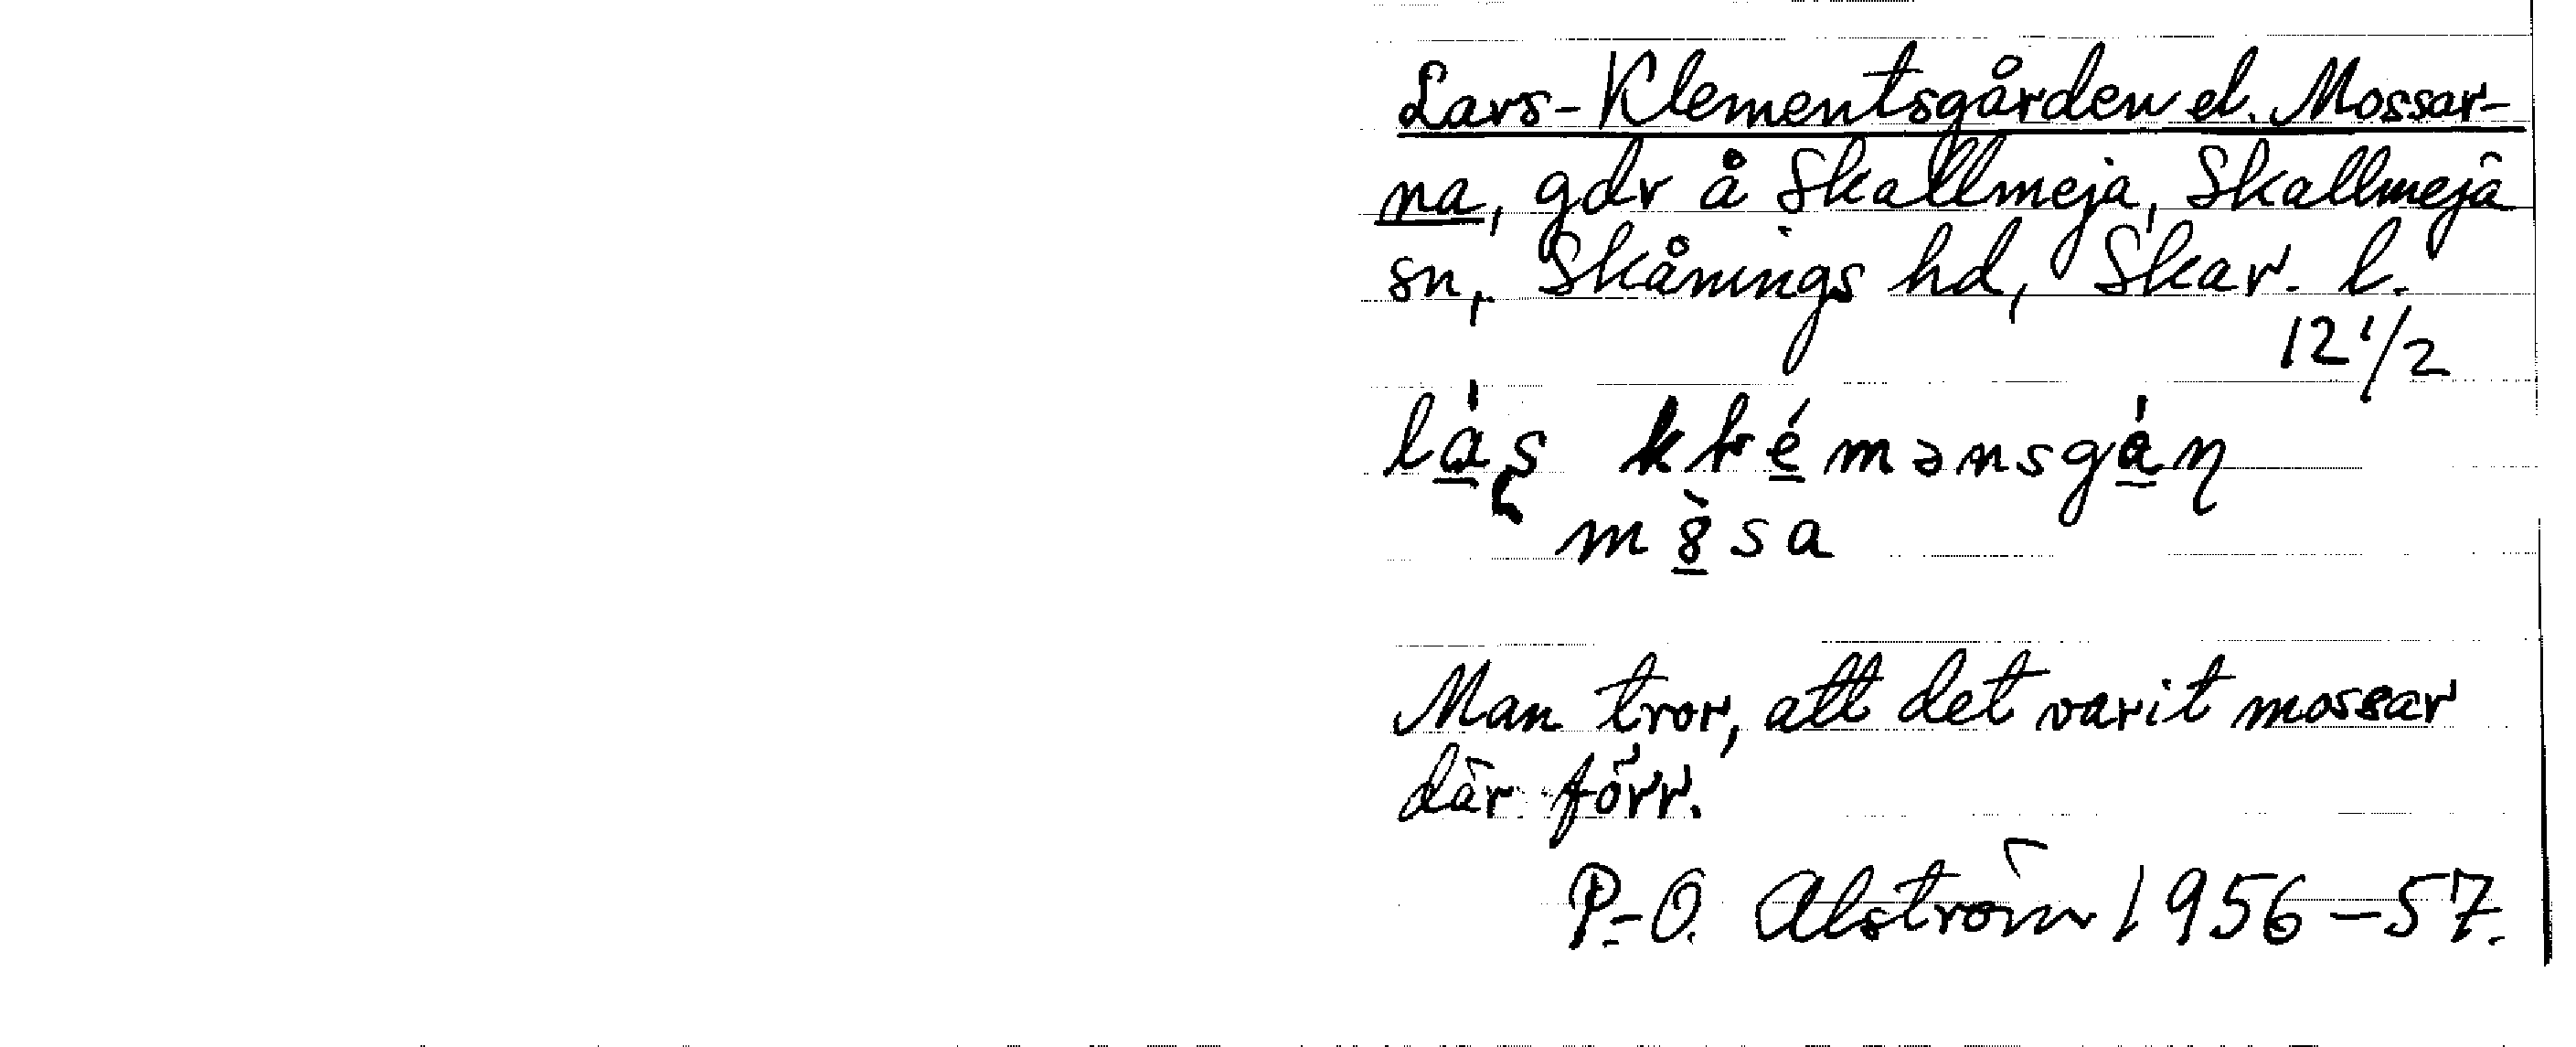 Lars-Klementsgården el. Mossar-
na, gdr å Skallmeja, Skallmeja
sn, Skånings hd, Skar. l.
12 1/2
mòsa
Man tror, att det varit mossar
där förr.
P.-O. Alström 1956-57.